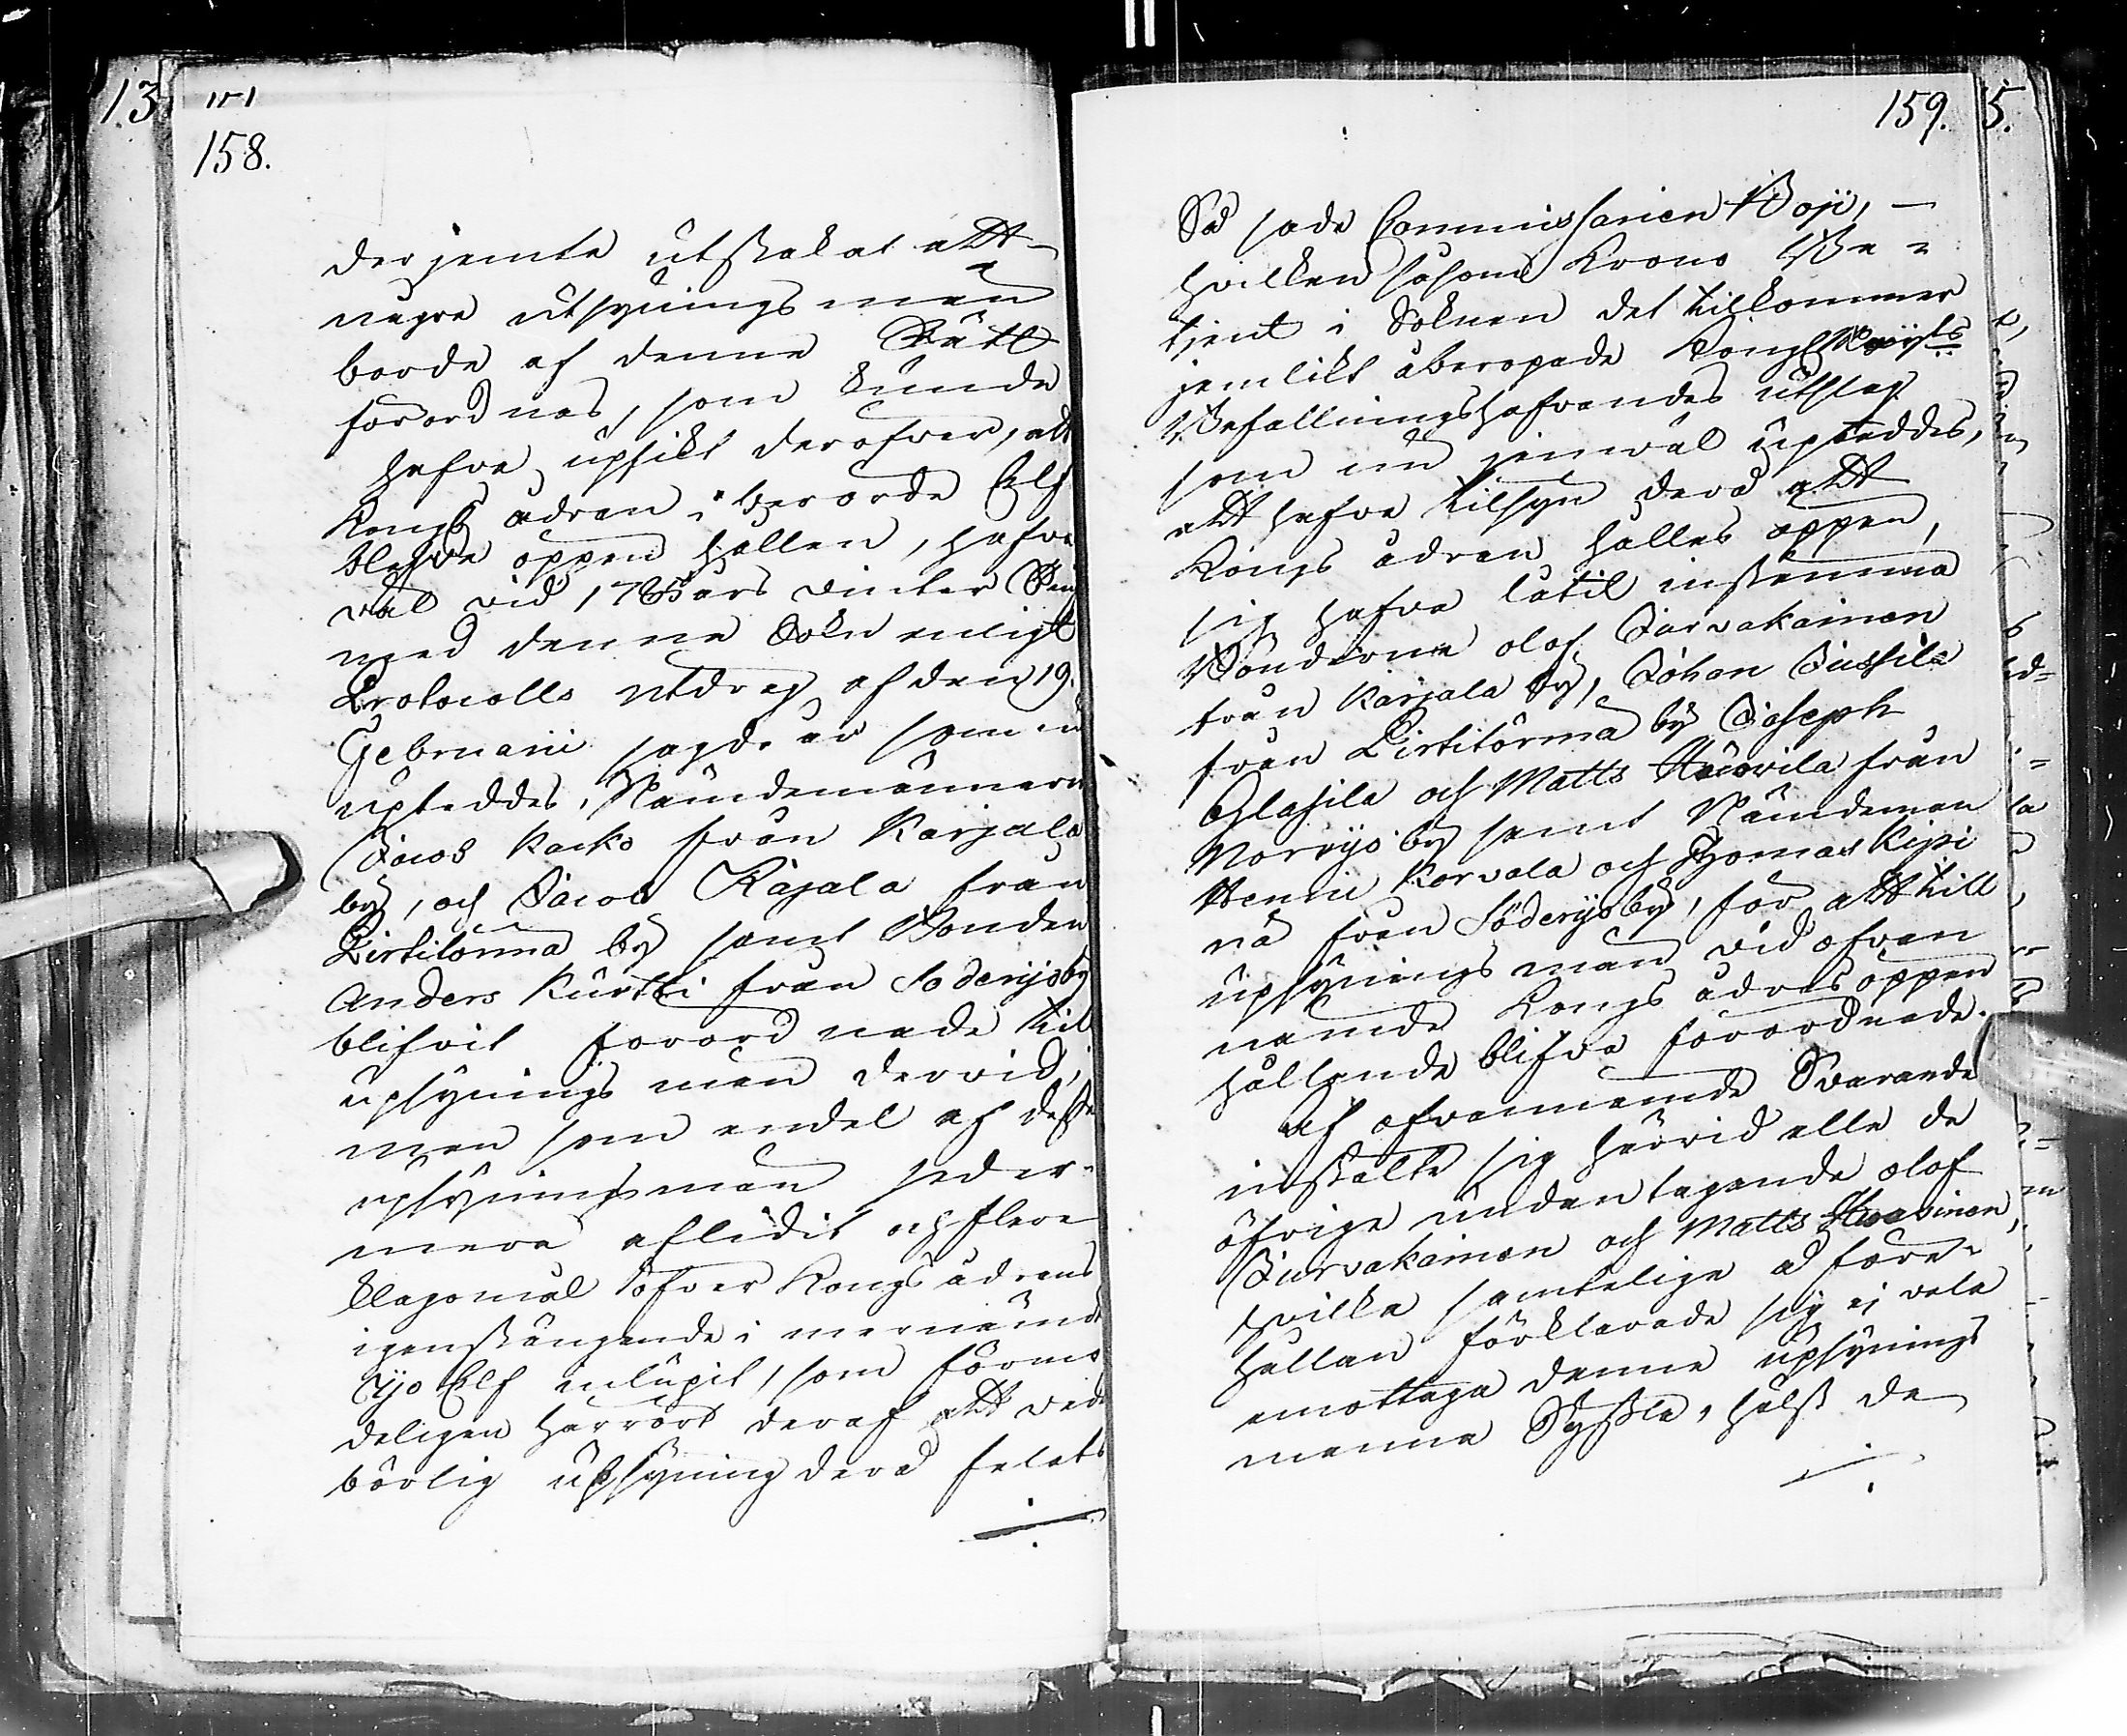 13
151
158.
derjemte utstakat att
någre utsynings män
borde af denne Rätt
förordnas, som kunde
hafva upsikt deröfver, att
Kongs ådran i berörde Elf
blefve öppen hållen, hafva
väl vid 1765 års vinter Ting
med denne Sokn enligt
Protocolls utdrag af den 19.
Februarii sagde år som nu
upteddes, Nämndemännerne
Jacob Kacko från Karjala
by, och Jacob Rajala från
Pirtitörmä by samt Bonden
Anders Kurtti från Söderijoby
blifvit förordnade till
upsynings män dervid,
men som endel af desse
upsyningsmän seder-
mera aflidit och flere
klagomål öfver Kongsådrens
igenstängande i mernämde
Ijo Elf inlupit, som förmo
deligen härrört deraf att vede
börlig upsyning derå felats
159.
5.
Så hade Commissarien Boije,
hvilken såsom Krono Be-
tjent i Soknen det tilkommer
jemlikt åberopade Kongl. Maj:ts
Befallningshafvandes utslag
som nu jemväl upteddes,
att hafva tilsyn derå att
Kongs ådran hålles öppen,
sig hafva låtit instemma
Bönderne Olof Jurvakainen
från Karjala by, Johan Jussila
från Pirtitörmä by Joseph
Glasila och Matts Huovila från
Norrijo by samt Nämdeman
Henric Karvala och Thomas Kipi
nä från Söderijoby, för att till
upsynings man vid ofvan
nämde Kongs ådras öppen
hållande blifva förordnade.
Af ofvannämde Svarande
instälte sig härvid alle de
öfrige undantagande Olof
Jurvakainen och Matts Huovinen,
hvilka samtelige å före-
hållan förklarade sig ej vela
emottaga denne upsynings
manna Syssla, hälst de